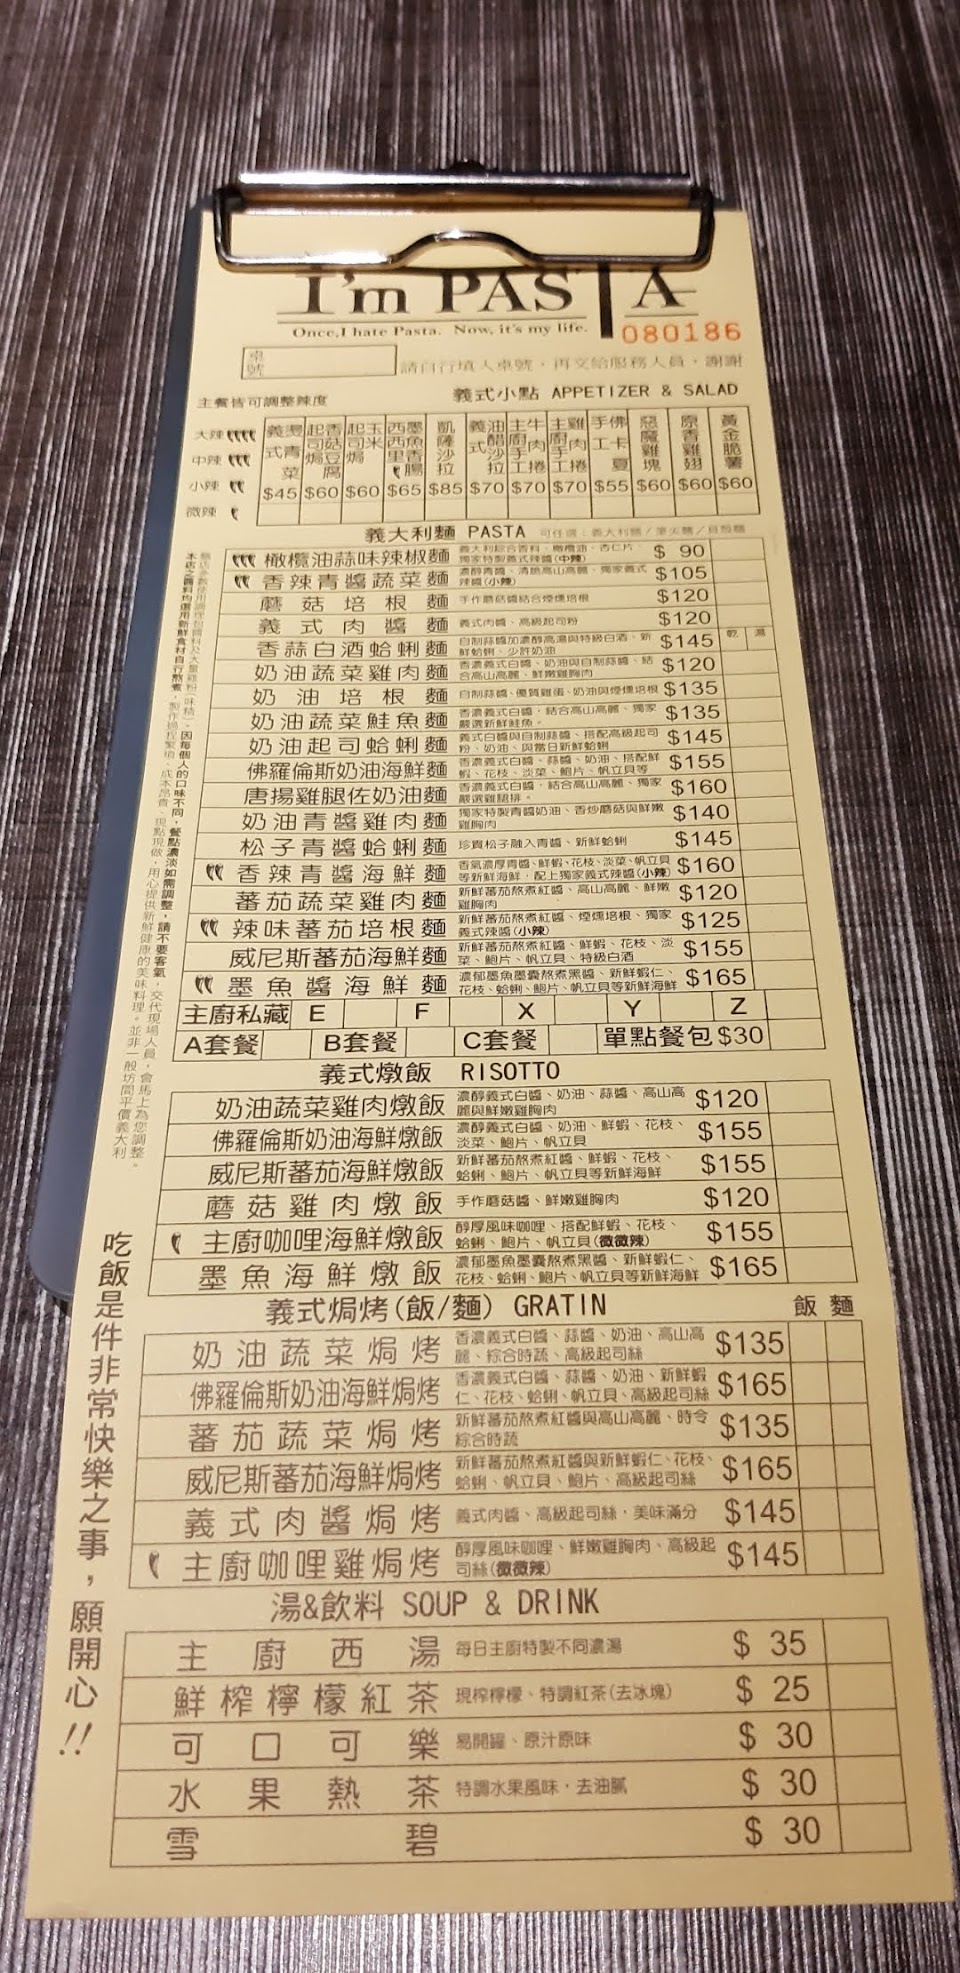 I'm PASTA
Once,I hate Pasta. Now, it's my life.
080186
桌號
請自行填入桌號、再交給服務人員，謝謝
主餐皆可調整辣度
義式小點 APPETIZER & SALAD
大辣
中辣
小辣
微辣
義式燙青菜 $45
起司焗香菇豆腐 $60
起司焗玉米 $60
西西里墨魚香腸 $65
凱薩沙拉 $85
義式油醋沙拉 $70
主廚手工牛肉捲 $70
主廚手工雞肉捲 $70
手工佛卡夏 $55
惡魔雞塊 $60
原香雞翅 $60
黃金脆薯 $60
義大利麵 PASTA 可任選：義大利麵／筆尖麵／貝殼麵
橄欖油蒜味辣椒麵 義大利綜合香料、橄欖油、杏仁片、獨家特製義式辣醬(中辣) $ 90
香辣青醬蔬菜麵 濃醇青醬、清脆高山高麗、獨家義式辣醬(小辣) $105
蘑菇培根麵 手作蘑菇醬結合煙燻培根 $120
義式肉醬麵 義式肉醬、高級起司粉 $120
香蒜白酒蛤蜊麵 自制蒜醬加濃醇高湯與特級白酒、新鮮蛤蜊、少許奶油 $145 乾 湯
奶油蔬菜雞肉麵 香濃義式白醬、奶油與自制蒜醬、結合高山高麗、鮮嫩雞胸肉 $120
奶油培根麵 自制蒜醬、優質雞蛋、奶油與煙燻培根 $135
奶油蔬菜鮭魚麵 香濃義式白醬，結合高山高麗、獨家嚴選新鮮鮭魚。 $135
奶油起司蛤蜊麵 義式白醬與自制蒜醬、搭配高級起司粉、奶油、與當日新鮮蛤蜊 $145
佛羅倫斯奶油海鮮麵 香濃義式白醬、蒜醬、奶油、搭配鮮蝦、花枝、淡菜、鮑片、帆立貝等 $155
唐揚雞腿佐奶油麵 香濃義式白醬，結合高山高麗、獨家嚴選雞腿排。 $160
奶油青醬雞肉麵 獨家特製青醬奶油、香炒蘑菇與鮮嫩雞胸肉 $140
松子青醬蛤蜊麵 珍貴松子融入青醬、新鮮蛤蜊 $145
香辣青醬海鮮麵 香氣濃厚青醬、鮮蝦、花枝、淡菜、帆立貝等新鮮海鮮，配上獨家義式辣醬(小辣) $160
蕃茄蔬菜雞肉麵 新鮮蕃茄熬煮紅醬、高山高麗、鮮嫩雞胸肉 $120
辣味蕃茄培根麵 新鮮蕃茄熬煮紅醬、煙燻培根、獨家義式辣醬(小辣) $125
威尼斯蕃茄海鮮麵 新鮮蕃茄熬煮紅醬、鮮蝦、花枝、淡菜、鮑片、帆立貝、特級白酒 $155
墨魚醬海鮮麵 濃郁墨魚墨囊熬煮黑醬、新鮮蝦仁、花枝、蛤蜊、鮑片、帆立貝等新鮮海鮮 $165
主廚私藏 E F X Y Z
A套餐 B套餐 C套餐 單點餐包 $30
義式燉飯 RISOTTO
奶油蔬菜雞肉燉飯 濃醇義式白醬、奶油、蒜醬、高山高麗與鮮嫩雞胸肉 $120
佛羅倫斯奶油海鮮燉飯 濃醇義式白醬、奶油、鮮蝦、花枝、淡菜、鮑片、帆立貝 $155
威尼斯蕃茄海鮮燉飯 新鮮蕃茄熬煮紅醬、鮮蝦、花枝、蛤蜊、鮑片、帆立貝等新鮮海鮮 $155
蘑菇雞肉燉飯 手作蘑菇醬、鮮嫩雞胸肉 $120
主廚咖哩海鮮燉飯 醇厚風味咖哩、搭配鮮蝦、花枝、蛤蜊、鮑片、帆立貝(微微辣) $155
墨魚海鮮燉飯 濃郁墨魚墨囊熬煮黑醬、新鮮蝦仁、花枝、蛤蜊、鮑片、帆立貝等新鮮海鮮 $165
義式焗烤(飯/麵) GRATIN 飯 麵
奶油蔬菜焗烤 香濃義式白醬、蒜醬、奶油、高山高麗、綜合時蔬、高級起司絲 $135
佛羅倫斯奶油海鮮焗烤 香濃義式白醬、蒜醬、奶油、新鮮蝦仁、花枝、蛤蜊、帆立貝、高級起司絲 $165
蕃茄蔬菜焗烤 新鮮蕃茄熬煮紅醬與高山高麗、時令綜合時蔬 $135
威尼斯蕃茄海鮮焗烤 新鮮蕃茄熬煮紅醬與新鮮蝦仁、花枝、蛤蜊、帆立貝、鮑片、高級起司絲 $165
義式肉醬焗烤 義式肉醬、高級起司絲，美味滿分 $145
主廚咖哩雞焗烤 醇厚風味咖哩、鮮嫩雞胸肉、高級起司絲(微微辣) $145
湯&飲料 SOUP & DRINK
主廚西湯 每日主廚特製不同濃湯 $ 35
鮮榨檸檬紅茶 現榨檸檬、特調紅茶(去冰塊) $ 25
可口可樂 易開罐、原汁原味 $ 30
水果熱茶 特調水果風味，去油膩 $ 30
雪碧 $ 30
因每個人的口味不同，餐點濃淡如需調整，請不要客氣，交代現場人員，會馬上為您調整。
本店之醬料均選用新鮮食材自行熬煮，製作過程繁瑣、成本昂貴、現點現做，用心提供新鮮健康的美味料理。並非一般坊間平價義大利
吃飯是件非常快樂之事，願開心!!